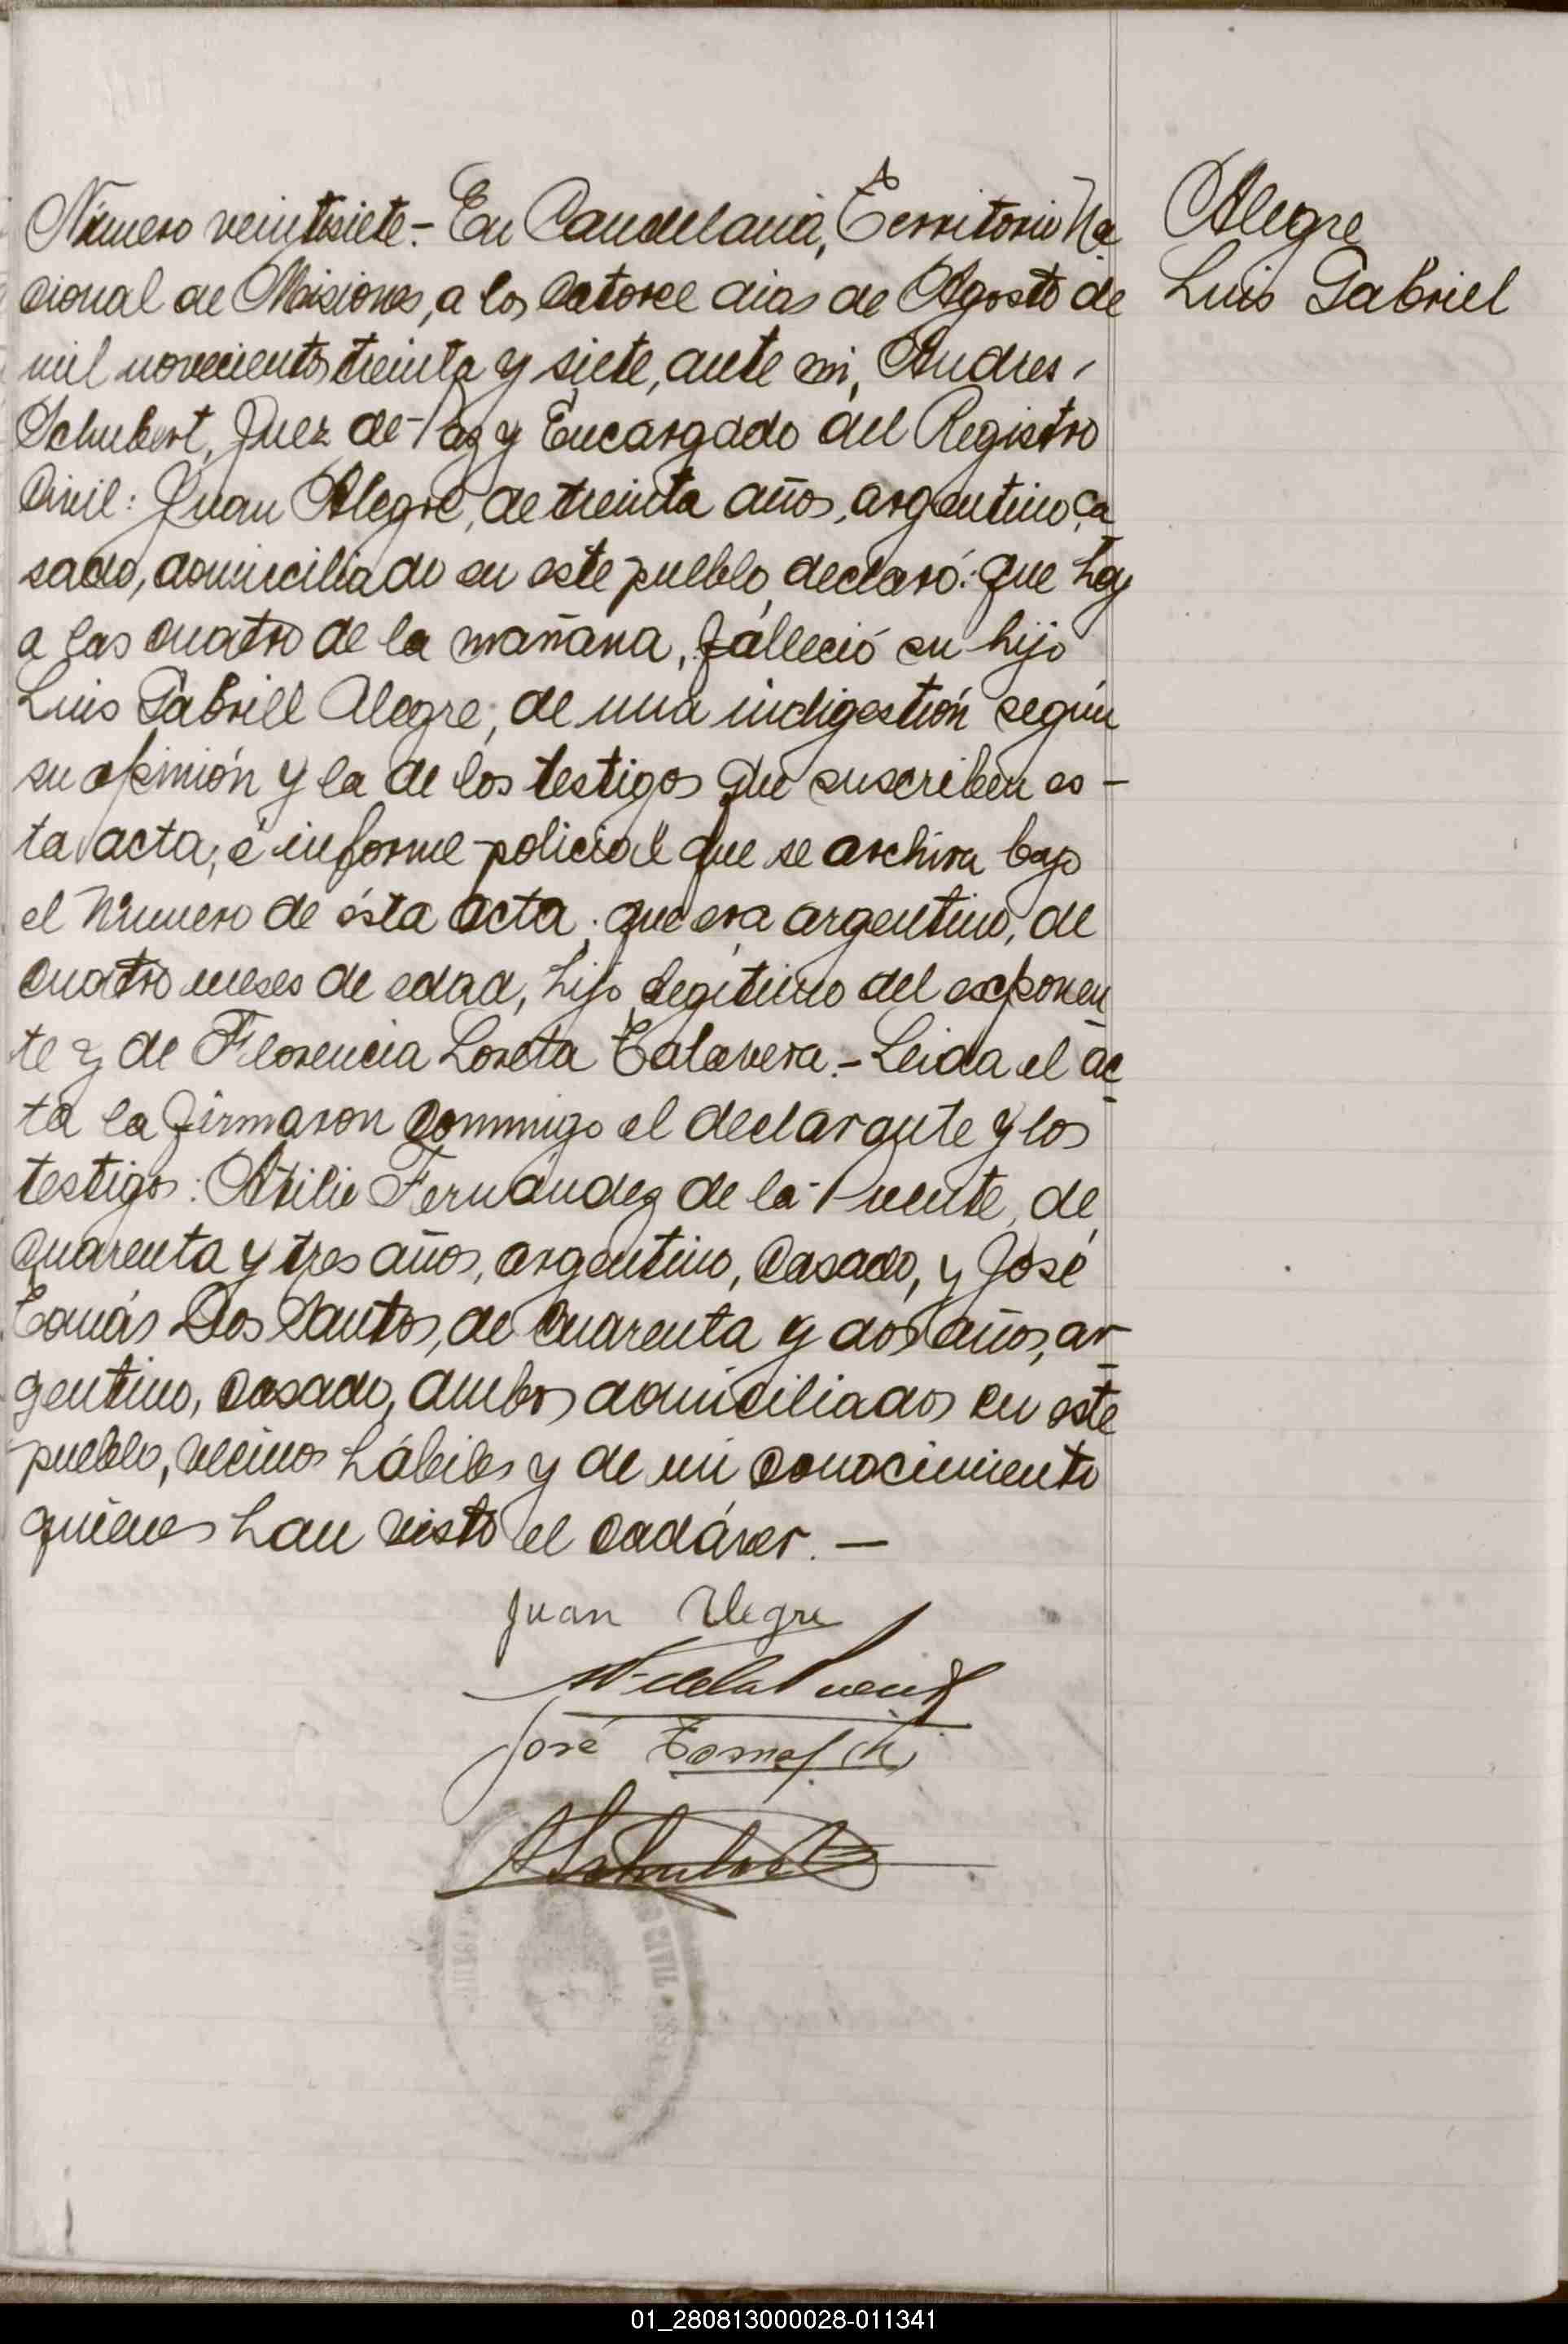 Número veintisiete.- En Candelaria, Territorio Na
cional de Misiones, a los catorce dias de Agosto de
mil novecientos treinta y siete, ante mi, Andres
Schubert, Juez de Paz y Encargado del Registro
Civil: Juan Alegre, de treinta años, argentino, ca
sado, domiciliado en este pueblo, declaró: que hoy
a las cuatro de la mañana, falleció su hijo
Luis Gabriel Alegre, de una indigestión según
su opinión y la de los testigos que suscriben es-
ta acta, é informe policial que se archiva bajo
el Número de ésta acta; que era argentino, de
cuatro meses de edad, hijo legítimo del exponen-
te y de Florencia Loreta Talavera.- Leida el ac-
ta la firmaron conmigo el declarante y los
testigos: Atilio Fernández de la Puente, de
cuarenta y tres años, argentino, casado, y José
Tomás Dos Santos, de cuarenta y dos años, ar-
gentino, casado, ambos domiciliados en este
pueblo, vecinos hábiles y de mi conocimiento
quienes han visto el cadáver. —
Alegre
Luis Gabriel
Juan Alegre
de la Puente
José Tomas
ASchubert
CIVIL
01_280813000028-011341